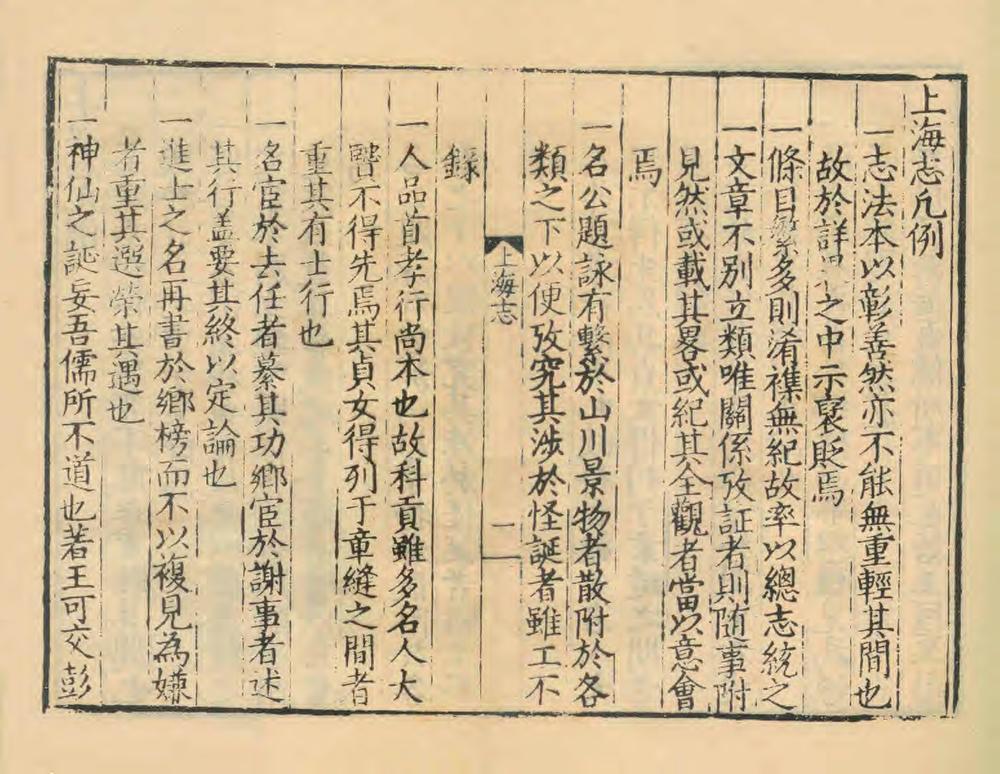 上海志凡例
一志法本以彰善然亦不能無重輕其間也
故於詳畧之中示襃貶焉
一條目繁多則淆襍無紀故率以總志統之
一文章不別立類唯關係攷証者則随事附
見然或載其畧或紀其全觀者當以意會
焉
一名公題詠有繫於山川景物者散附於各
類之下以便攷究其涉於怪誕者雖工不
上海志
一
錄
一人品首孝行尚本也故科貢雖多名人大
不得先焉其貞女得列于章縫之間者
重其有士行也
一名宦於去任者纂其功鄉宦於謝事者述
其行盖要其終以定論也
一進士之名再書於鄉榜而不以複見為嫌
者重其選榮其遇也
一神仙之誕妄吾儒所不道也若王可交彭